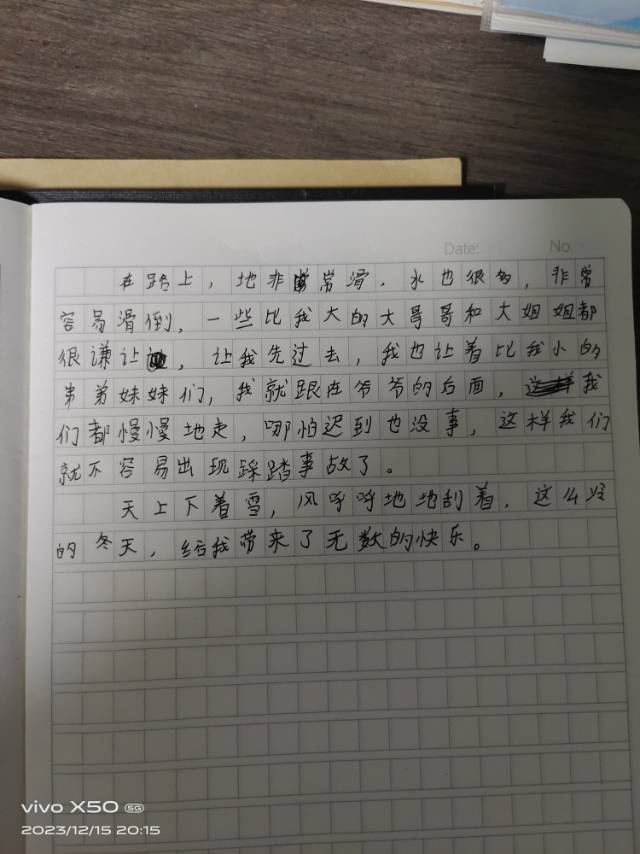 Date:
No.
在路上，地非常滑，水也很多，非常
容易滑倒，一些比我大的大哥哥和大姐姐都
很谦让，让我先过去，我也让着比我小的
弟弟妹妹们，我就跟在爷爷的后面，我
们都慢慢地走，哪怕迟到也没事，这样我们
就不容易出现踩踏事故了。
天上下着雪，风呼呼地地刮着，这么好
的冬天，给我带来了无数的快乐。
vivo X50 5G
2023/12/15 20:15